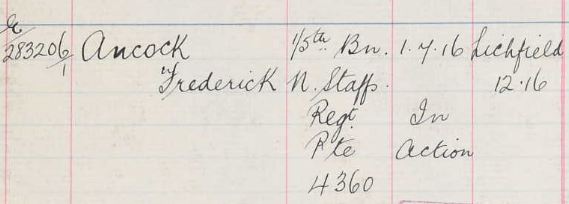 E/
283206/1 Ancock 1/5th Bn. 1.7.16 Lichfield
Frederick N. Staffs. 12.16
Regt In
Pte Action
4360